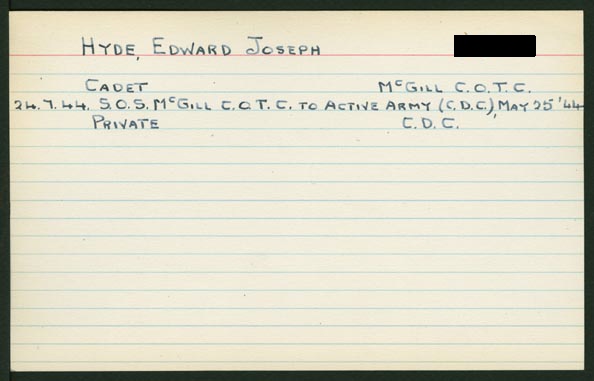 HYDE, EDWARD JOSEPH
CADET McGILL C.O.T.C.
24.7.44. S.O.S. McGILL C.O.T.C. TO ACTIVE ARMY (C.D.C), MAY 25 '44
PRIVATE C.D.C.